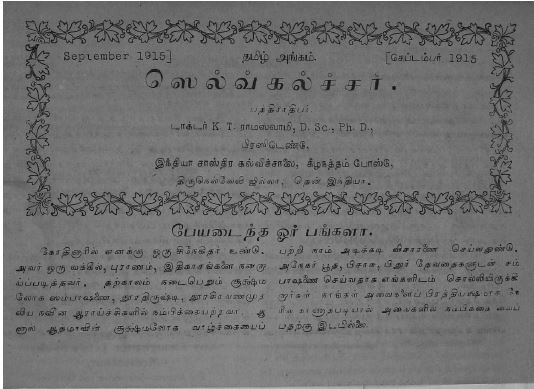 September 1915]
தமிழ் அங்கம்.
[செப்டம்பர் 1915
ஸெல்வ்கல்ச்சர்.
பத்திராதிபர்.
டாக்டர் K. T. ராமஸ்வாமி, D. Sc., Ph. D.,
பிரஸிடெண்டு,
இந்தியா சாஸ்திர கல்விச்சாலை, கீழநத்தம் போஸ்டு,
திருநெல்வேலி ஜில்லா, தென் இந்தியா.
பேயடைந்த ஓர் பங்களா.
கோதினூரில் எனக்கு ஒரு சிநேகிதர் உண்டு.
அவர் ஒரு வக்கீல், புராணம், இதிகாசங்களை நன்கு
தற்காலம் நடைபெறும் சூக்ஷம
லோக ஸம்பாஷணை, தூரதிருஷ்டி,
நவீன ஆராய்ச்சிகளில் நம்பிக்கையற்றவர். ஆ
னால் ஆத்மாவின் சூக்ஷமலோக வாழ்க்கையைப்
பற்றி நாம் அடிக்கடி விசாரணை செய்வதுண்டு.
அநேகர் பூத, பிசாசு, பிதுர் தேவதைகளுடன் சம்
பாஷணை செய்வதாக எங்களிடம் சொல்லியிருக்கி
றார்கள் நாங்கள் அவைகளைப் பிரத்தியக்ஷமாக நே
ரில் காணாதபடியால் அவைகளில் நம்பிக்கை வைப்
பதற்கு இடமில்லை.